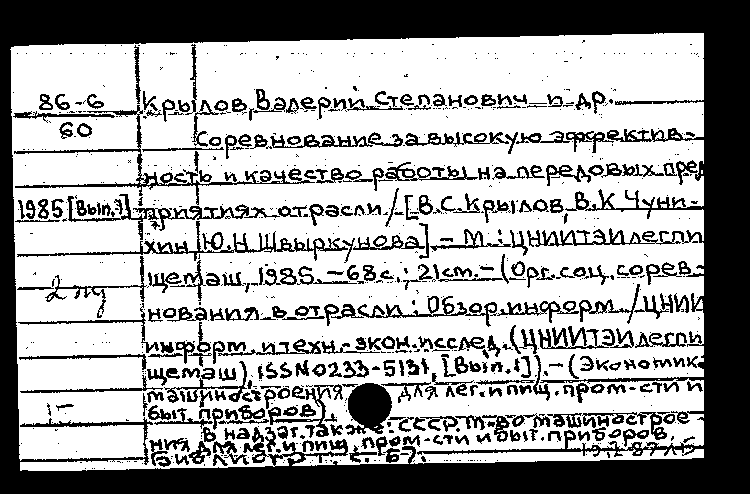 86-6
60
Крылов, Валерий Степанович и др.
Соревнование за высокую эффектив-
ность и качество работы на передовых пред
1985 [Вып.1]
приятиях отрасли / [В.С. Крылов, В.К Чуни-
хин, Ю.Н Швыркунова]. – М. : ЦНИИТЭИлегпи
щемаш, 1985. – 68 с. ; 21 см. – (Орг. соц. сорев-
2
нования в отрасли : Обзор. информ. / ЦНИИ
информ. и техн.-экон. исслед. (ЦНИИТЭИлегпи
щемаш), ISSN 0233-5131, [Вып. 1]). – (Экономика
машиностроения для лег. и пищ. пром-сти и
быт. приборов).
В надзаг. также: СССР. М-во машинострое-
ния для лег. и пищ. пром-сти и быт. приборов.
Библиогр.: с. 67.